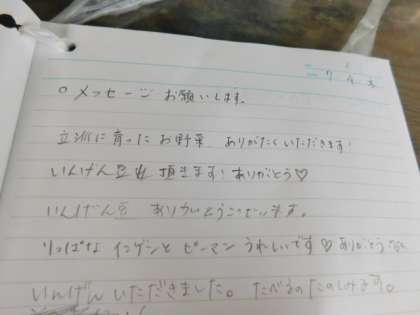 7
○メッセージ お願いします。
立派に育ったお野菜 ありがたくいただきます!
いんげん豆 頂きます!ありがとう♡
いんげん豆 ありがとうございます。
りっぱな インゲンと ピーマン うれしいです♡ありがとう
いんげん いただきました。 たべるの たのしみです。